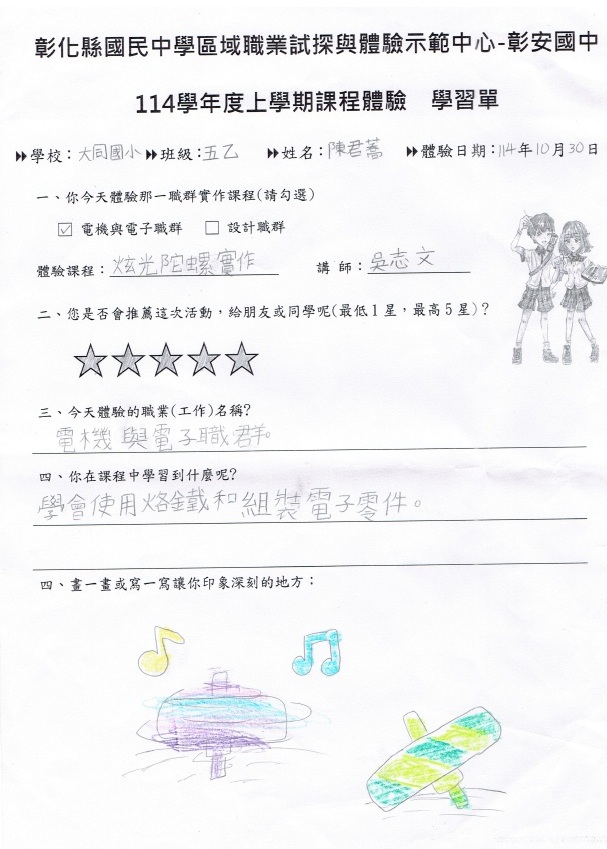 彰化縣國民中學區域職業試探與體驗示範中心-彰安國中
114學年度上學期課程體驗 學習單
學校：大同國小 班級：五乙 姓名：陳君蕎 體驗日期：114年10月30日
一、你今天體驗那一職群實作課程(請勾選)
☑ 電機與電子職群 □ 設計職群
體驗課程：炫光陀螺實作 講 師：吳志文
二、您是否會推薦這次活動，給朋友或同學呢(最低1星，最高5星)？
三、今天體驗的職業(工作)名稱?
電機與電子職群。
四、你在課程中學習到什麼呢?
學會使用烙鐵和組裝電子零件。
四、畫一畫或寫一寫讓你印象深刻的地方：